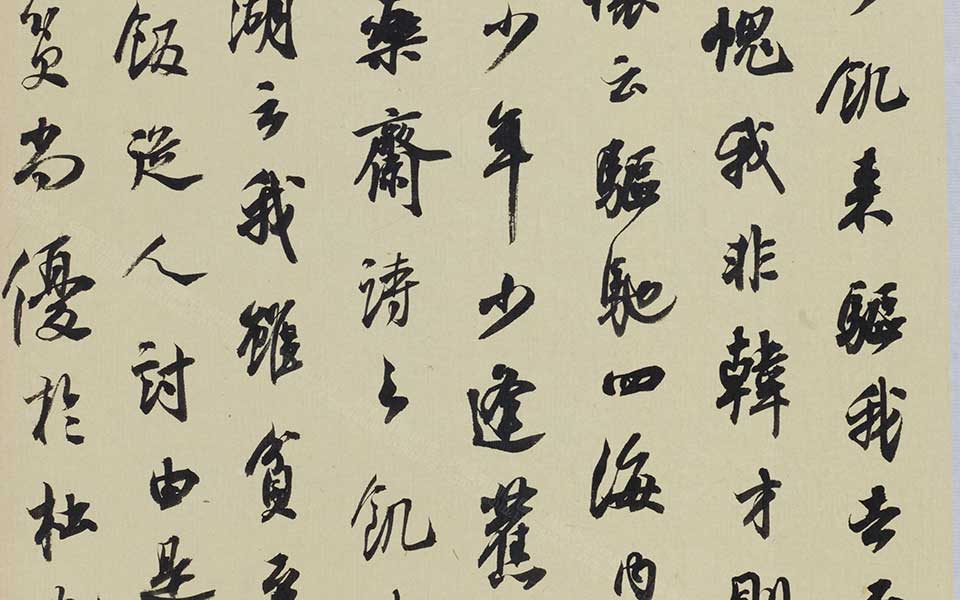 飢来驅我去
愧我非韓才
云驅馳四海内
少年少逢舊
樂齋詩云飢
湖云我雖貧
飯從人討由是
貧尚優於杜